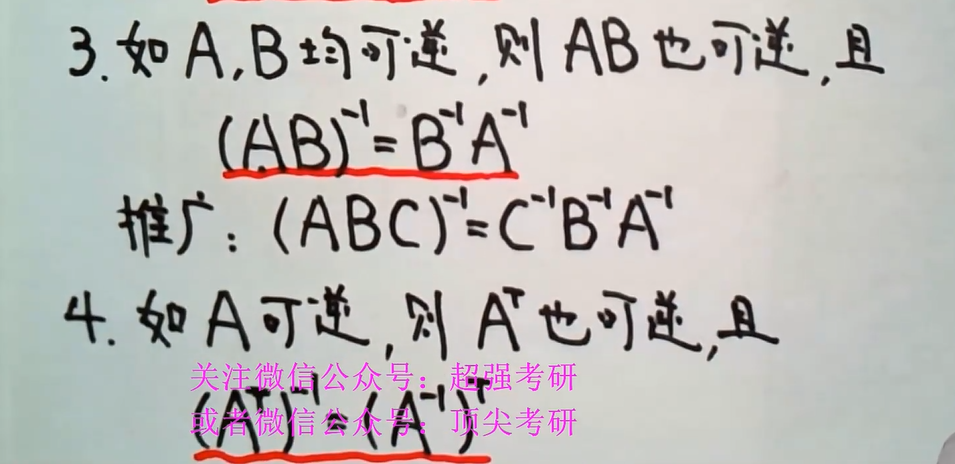 3. 如 A, B 均可逆, 则 AB 也可逆, 且
(AB)⁻¹ = B⁻¹A⁻¹
推广: (ABC)⁻¹ = C⁻¹B⁻¹A⁻¹
4. 如 A 可逆, 则 Aᵀ 也可逆, 且
关注微信公众号：超强考研
(Aᵀ)⁻¹ = (A⁻¹)ᵀ
或者微信公众号：顶尖考研